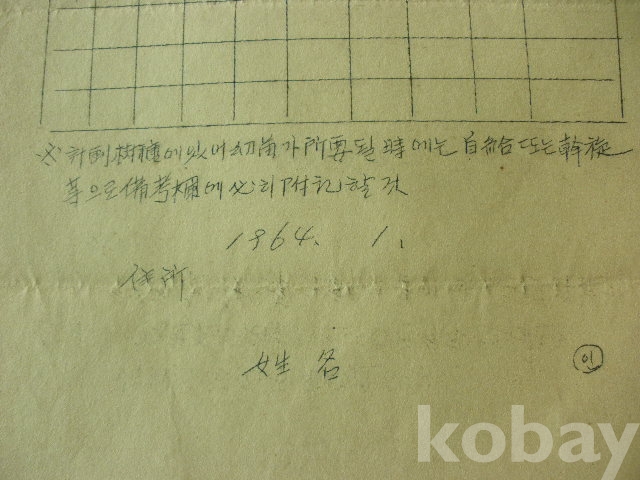 ※ 計劃樹種에 있어 幼苗가 所要될 時에는 自給 또는 斡旋
等으로 備考欄에 必히 附記할 것
1964. 1.
住所
姓名 印
kobay